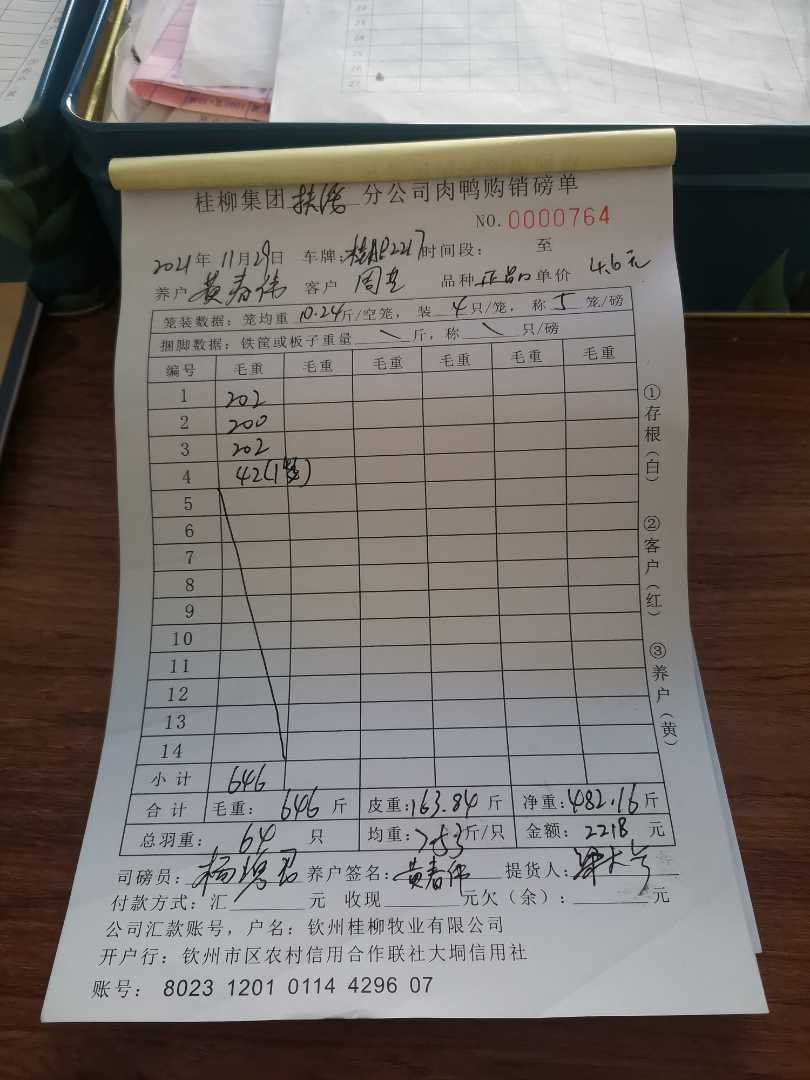 桂柳集团 扶绥 分公司肉鸭购销磅单
NO.0000764
2021年11月29日 车牌: 2217 时间段: 至
养户 黄春伟 客户 周 品种 正品 单价 4.6元
笼装数据: 笼均重 10.24斤/空笼, 装 4只/笼, 称 5 笼/磅
捆脚数据: 铁筐或板子重量 \ 斤, 称 \ 只/磅
编号 毛重 毛重 毛重 毛重 毛重 毛重
1 202
2 200
3 202
4 42(1笼)
5
6
7
8
9
10
11
12
13
14
小计 646
合计 毛重: 646斤 皮重:163.84斤 净重:482.16斤
总羽重: 64 只 均重:7.53斤/只 金额: 2218 元
司磅员: 杨 君 养户签名: 黄春伟 提货人:
付款方式: 汇 元 收现 元欠(余): 元
公司汇款账号, 户名: 钦州桂柳牧业有限公司
开户行: 钦州市区农村信用合作联社大垌信用社
账号: 8023 1201 0114 4296 07
①存根(白) ②客户(红) ③养户(黄)